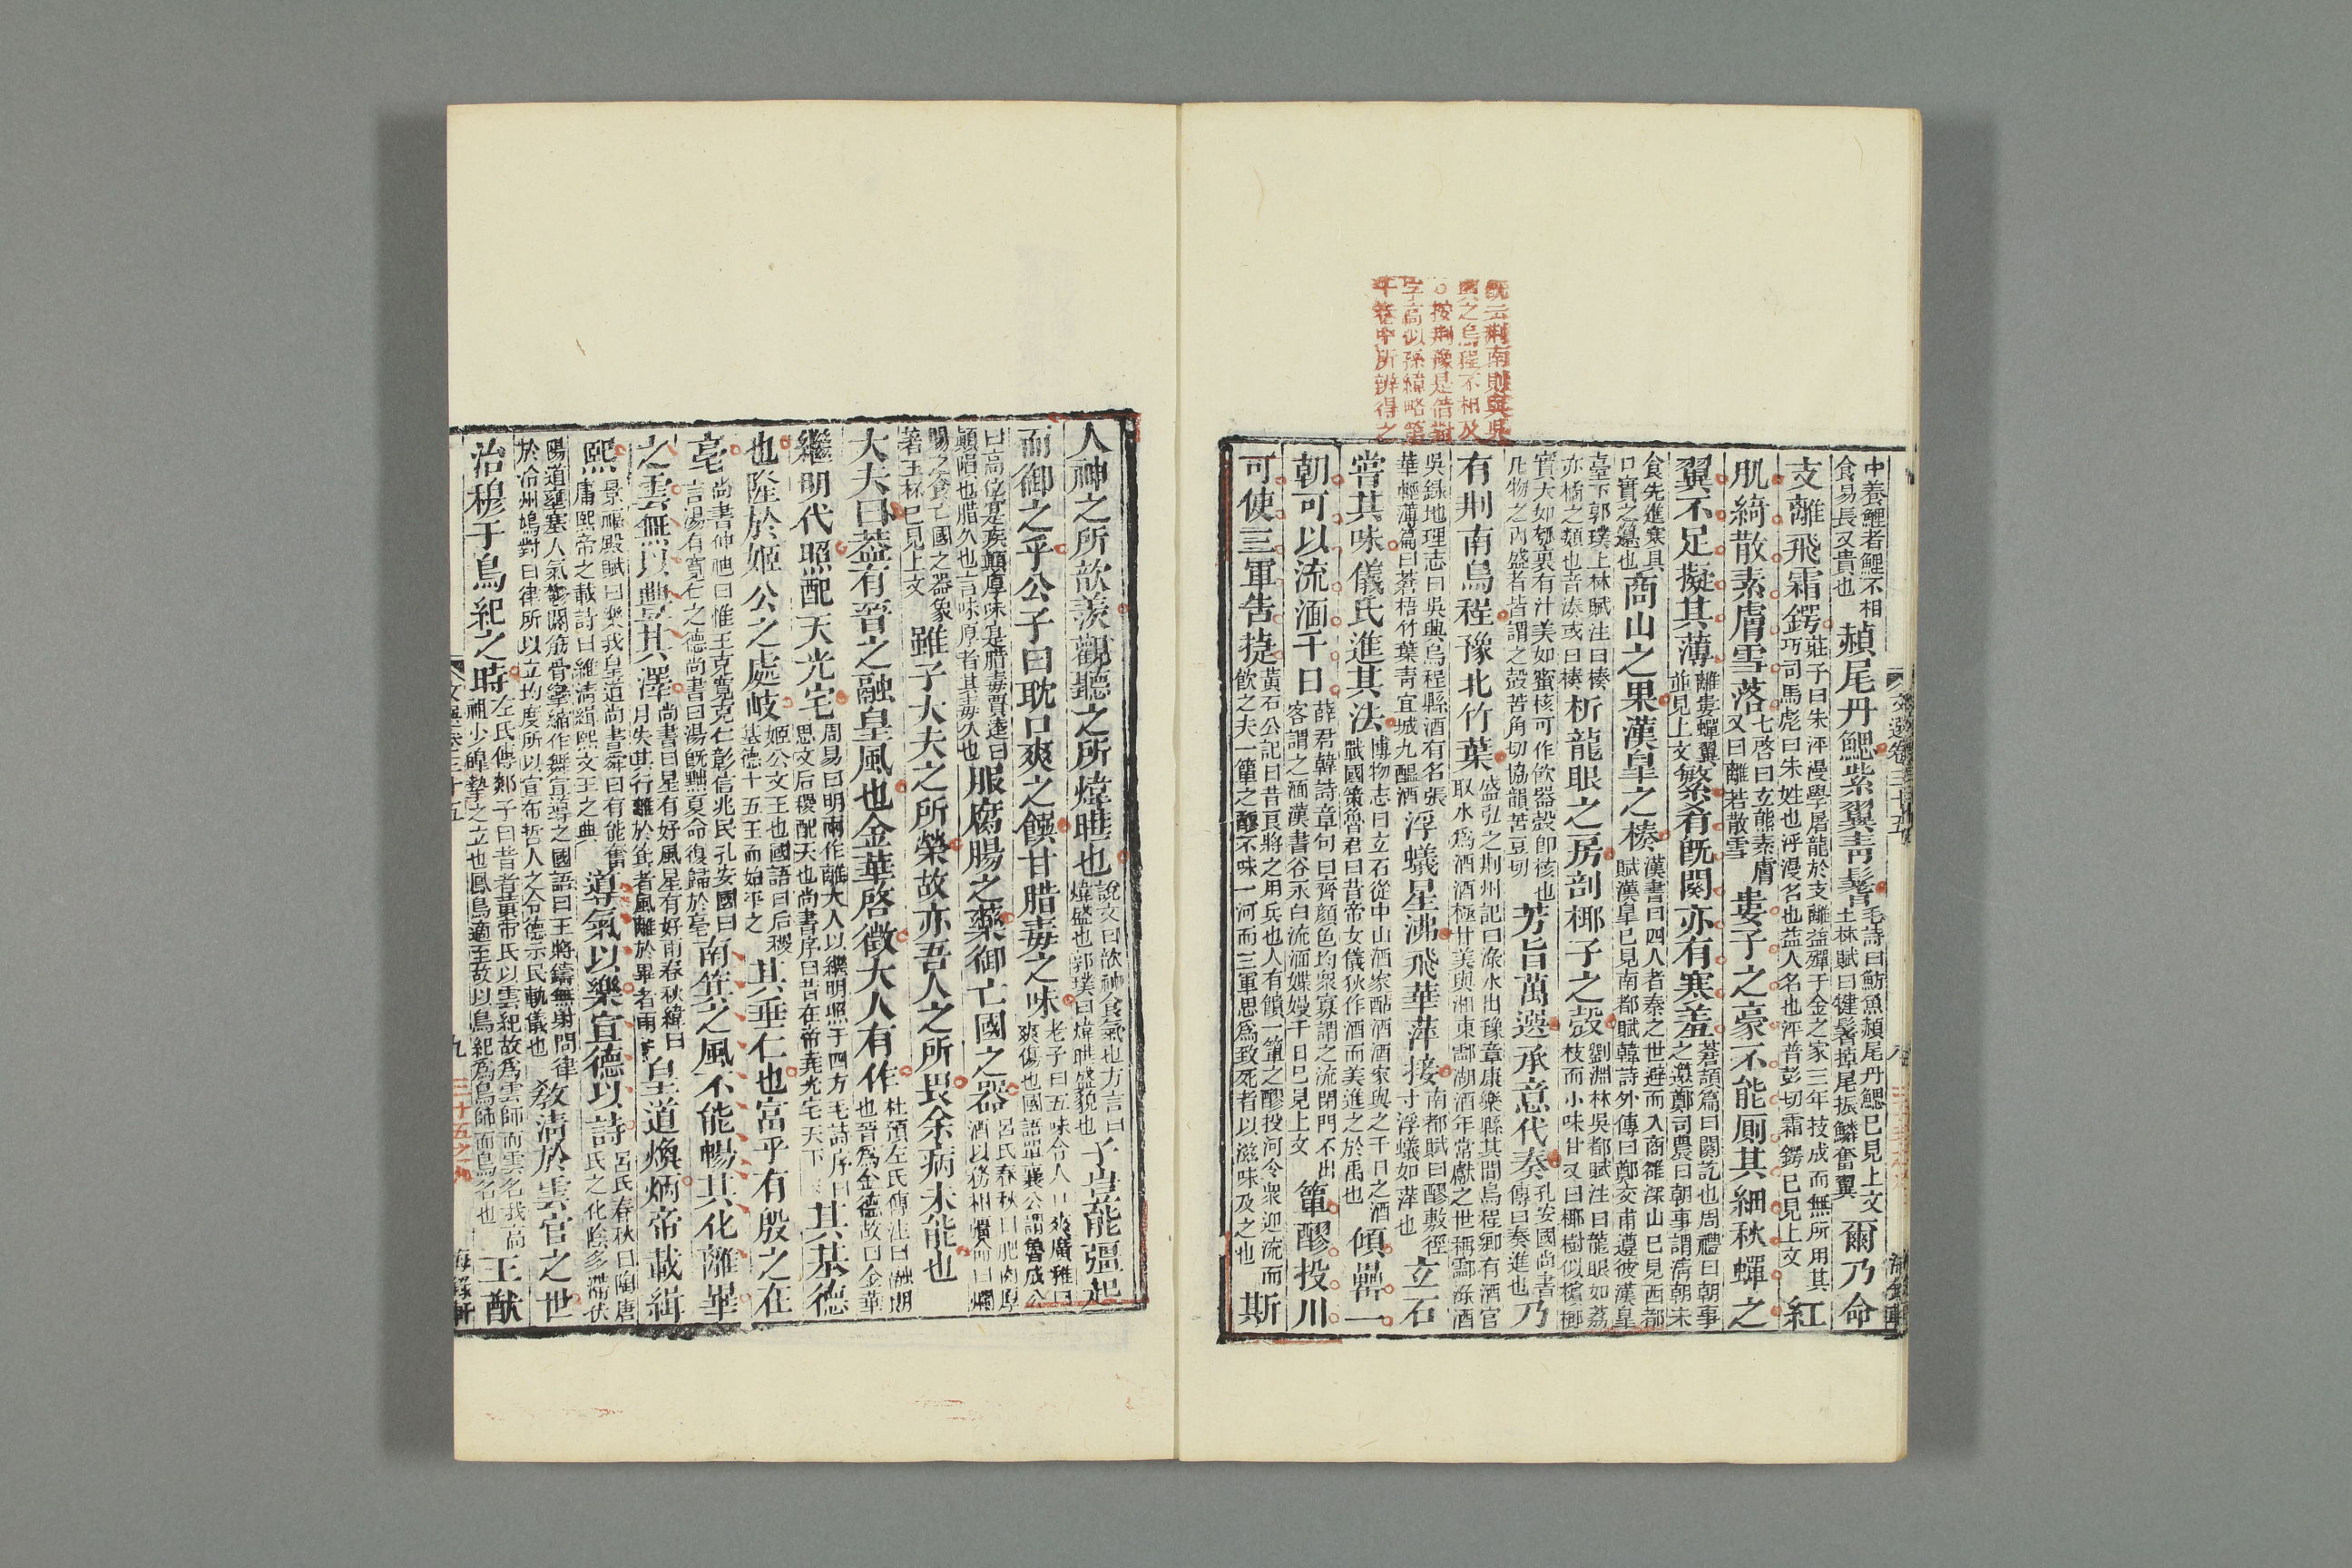 旣云荆南則與吳
興之烏程不相及
按荆豫是借對
字高似孫緯略第
卷中所辨得之
中養鯉者鯉不相食易長又貴也赬尾丹鰓紫翼青鬐毛詩曰魴魚赬尾丹鰓已見上文上林賦曰揵鬐掉尾振鱗奮翼爾乃命
支離飛霜鍔莊子曰朱泙漫學屠龍於支離益殫千金之家三年技成而無所用其巧司馬彪曰朱姓也泙漫名也益人名也泙普彭切霜鍔已見上文紅
肌綺散素膚雪落七啓曰玄熊素膚又曰離若散雪婁子之豪不能厠其細秋蟬之
翼不足擬其薄離婁蟬翼並見上文繁肴旣闋亦有寒羞蒼頡篇曰闋訖也周禮曰朝事之籩鄭司農曰朝事謂清朝未
食先進寒具口實之籩也商山之果漢皇之楱漢書曰四人者秦之世避而入商雒深山已見西都賦漢皇已見南都賦韓詩外傳曰鄭交甫遵彼漢皐
臺下郭璞上林賦注曰楱亦橘之類也音湊或曰楱析龍眼之房剖椰子之殼劉淵林吳都賦注曰龍眼如荔枝而小味甘又曰椰樹似檳榔
實大如瓠裏有汁美如蜜核可作飲器殼卽核也凡物之內盛者皆謂之殼苦角切協韻苦豆切芳旨萬選承意代奏孔安國尚書傳曰奏進也乃
有荆南烏程豫北竹葉盛弘之荆州記曰淥水出豫章康樂縣其間烏程鄉有酒官取水爲酒酒極甘美與湘東酃湖酒年常獻之世稱酃淥酒
吳錄地理志曰吳興烏程縣酒有名張華輕薄篇曰蒼梧竹葉青宜城九醞酒浮蟻星沸飛華萍接南都賦曰醪敷徑寸浮蟻如萍也立石
嘗其味儀氏進其法博物志曰立石從中山酒家酤酒酒家與之千日之酒戰國策魯君曰昔帝女儀狄作酒而美進之於禹也傾罍一
朝可以流湎千日薛君韓詩章句曰齊顔色均衆寡謂之流閉門不出客謂之湎漢書谷永曰流湎媟嫚千日已見上文簞醪投川
可使三軍告捷黃石公記曰昔良將之用兵也人有饋一簞之醪投河令衆迎流而飲之夫一簞之醪不味一河而三軍思爲致死者以滋味及之也斯
文選卷三十五
人神之所歆羡觀聽之所煒曄也說文曰歆神食氣也方言曰煒盛也郭璞曰煒曄盛貌也子豈能彊起
而御之乎公子曰耽口爽之饌甘腊毒之味老子曰五味令人口爽廣雅曰爽傷也國語單襄公謂魯成公
曰高位寔疾顚厚味寔腊毒賈逵曰顚隕也腊久也言味厚者其毒久也服腐腸之藥御亡國之器呂氏春秋曰肥肉厚酒以務相彊命曰爛
腸之食亡國之器象箸玉杯已見上文雖子大夫之所榮故亦吾人之所畏余病未能也
大夫曰蓋有晉之融皇風也金華啓徵大人有作杜預左氏傳注曰融朗也晉爲金德故曰金華
繼明代照配天光宅周易曰明兩作離大人以繼明照于四方毛詩序曰思文后稷配天也尚書序曰昔在帝堯光宅天下其基德
也隆於姬公之處岐姬公文王也國語曰后稷基德十五王而始平之其垂仁也富乎有殷之在
亳尚書仲虺曰惟王克寬克仁彰信兆民孔安國曰言湯有寬仁之德尚書曰湯旣黜夏命復歸於亳南箕之風不能暢其化離畢
之雲無以豐其澤尚書曰星有好風星有好雨春秋緯曰月失其行離於箕者風離於畢者雨皇道煥炳帝載緝
熙景福殿賦曰樂我皇道尚書舜曰有能奮庸熙帝之載詩曰維淸緝熙文王之典導氣以樂宣德以詩呂氏春秋曰陶唐氏之化陰多滯伏
陽道壅塞人氣鬱閼筋骨攣縮作舞宣導之國語曰王將鑄無射問律於泠州鳩對曰律所以立均度所以宣布哲人之令德示民軌儀也敎淸於雲官之世
治穆乎鳥紀之時左氏傳郯子曰昔者黃帝氏以雲紀故爲雲師而雲名我高祖少皥摯之立也鳳鳥適至故以鳥紀爲鳥師而鳥名也王猷
文選卷三十五
九
海錄軒